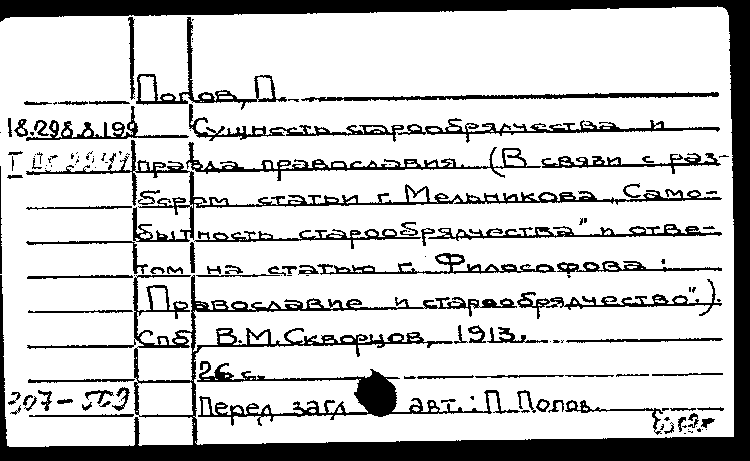 Попов, П.
18.298.8.199 Сущность старообрядчества и
правда православия. (В связи с раз-
бором статьи г. Мельникова „Само-
бытность старообрядчества" и отве-
том на статью г. Философова:
„Православие и старообрядчество".).
Спб, В.М.Скворцов, 1913.
26 с.
Перед загл авт.: П. Попов.